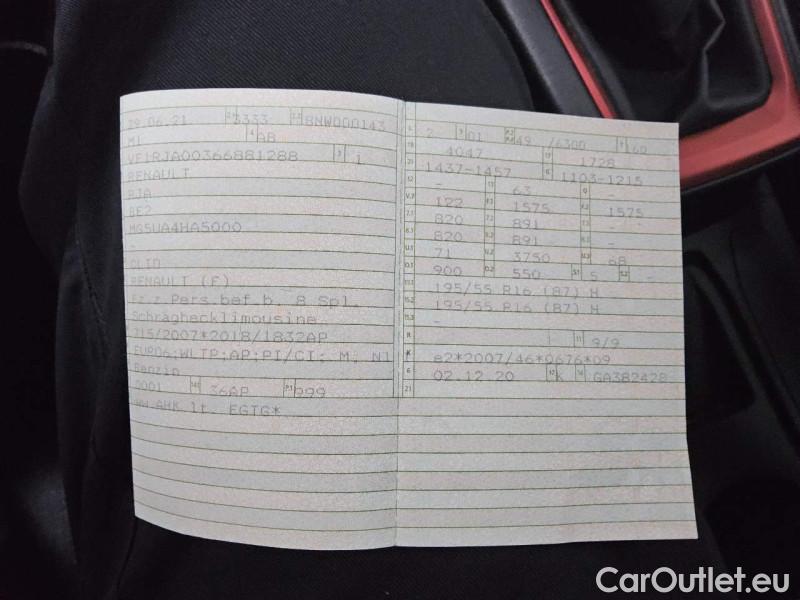 29.06.21 3333 BNW000143
M1 AB
VF1RJA00366881288 1
RENAULT
RJA
BE2
MG5UA4HA5000
-
CLIO
RENAULT (F)
Fz.z.Pers.bef.b. 8 Spl.
Schräghecklimousine
715/2007*2018/1832AP
EURO6;WLTP;AP;PI/CI; M, N1
Benzin
0001 36AP 999
WW AHK lt. EGTG*
2 01 49 /6300 160
4047 1728
1437-1457 1103-1215
- 63 -
122 1575 1575
820 891 -
820 891 -
71 3750 68
900 550 5 -
195/55 R16 (87) H
195/55 R16 (87) H
-
9/9
e2*2007/46*0676*09
02.12.20 K GA382428
CarOutlet.eu